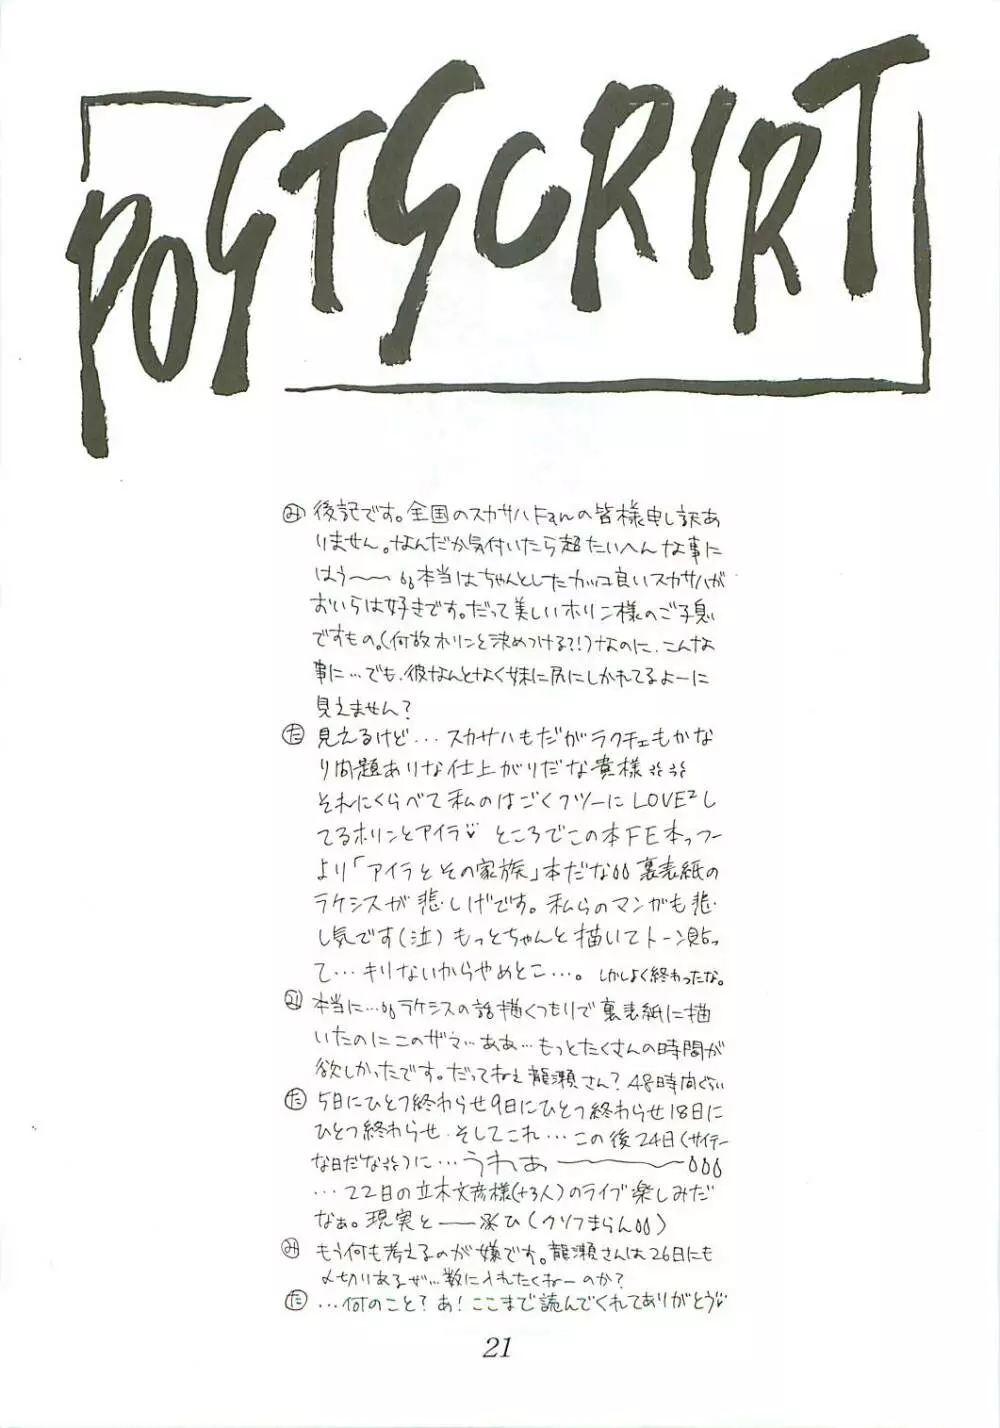 POSTSCRIPT
み 後記です。全国のスカサハFanの皆様申し訳あ
りません。なんだか気付いたら超たいへんな事に
はう〜〜 本当はちゃんとしたカッコ良いスカサハが
おいらは好きです。だって美しいホリン様のご子息
ですもの。(何故ホリンと決めつける?!)なのに、こんな
事に…でも、彼なんとなく妹に尻にしかれてるよーに
見えません?
た 見えるけど…スカサハもだがラクチェもかな
り問題ありな仕上がりだな貴様
それにくらべて私のはごくフツーにLOVE²し
てるホリンとアイラ♡ ところでこの本FE本っつー
より「アイラとその家族」本だな 裏表紙の
ラケシスが悲しげです。私らのマンガも悲
し気です(泣)もっとちゃんと描いてトーン貼っ
て…キリないからやめとこ…。しかしよく終わったな。
み 本当に…ラケシスの話描くつもりで裏表紙に描
いたのにこのザマ…ああ…もっとたくさんの時間が
欲しかったです。だってねぇ龍瀬さん?48時間ぐらい
た 5日にひとつ終わらせ9日にひとつ終わらせ18日に
ひとつ終わらせ、そしてこれ…この後24日(サイテー
な日だな)に…うわぁ〜〜
…22日の立木文彦様(+3人)のライブ楽しみだ
なぁ。現実と――逃ひ(クソつまらん)
み もう何も考えるのが嫌です。龍瀬さんは26日にも
〆切りあるぜ…数に入れたくねーのか?
た …何のこと?あ!ここまで読んでくれてありがとう♡
21